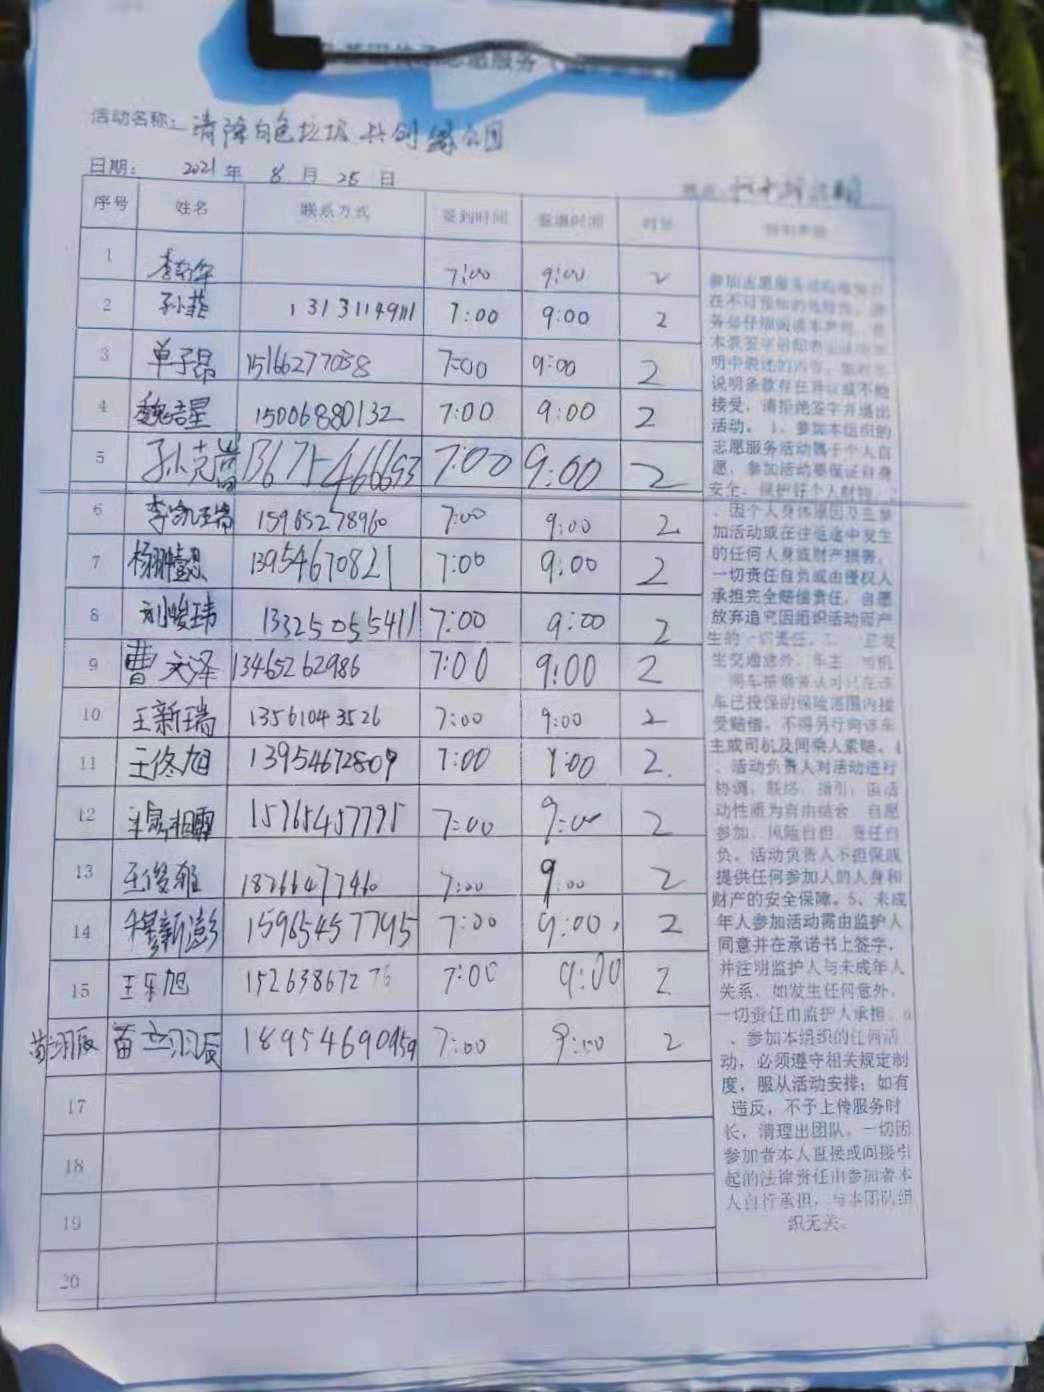 活动名称: 清除白色垃圾 共创 绿公园
日期: 2021 年 8 月 25 日
序号 姓名 联系方式 签到时间 签退时间 时长 特别声明
1 7:00 9:00 2
2 孙菲 13131149111 7:00 9:00 2
3 单子昂 15166277038 7:00 9:00 2
4 魏吉星 15006880132 7:00 9:00 2
5 孙克 7:00 9:00 2
6 李凯瑞 15965278960 7:00 9:00 2
7 13954670821 7:00 9:00 2
8 刘峻玮 13325055411 7:00 9:00 2
9 曹文泽 13465262986 7:00 9:00 2
10 王新瑞 13561043526 7:00 9:00 2
11 王佟旭 13954672809 7:00 9:00 2.
12 15965457795 7:00 9:00 2
13 王俊雅 18266477960 7:00 9:00 2
14 穆新澎 15965457795 7:00 9:00 2
15 王乐旭 15263867276 7:00 9:00 2
苗立羽辰 苗立羽辰 18954690959 7:00 9:00 2
17
18
19
20
参加志愿服务
在不可预知的危险性，
务必仔细阅读本声明，
明中表述的内容。
说明条款存在异议或不能
接受，请拒绝签字并退出
活动。 1、参加本组织的
志愿服务活动属于个人自
愿，参加活动要保证自身
安全，保护好个人财物。2
、因个人身体原因及在参
加活动或在往返途中发生
的任何人身或财产损害，
一切责任自负或由侵权人
承担完全赔偿责任，自愿
放弃追究因组织活动而产
生的一切责任。
生交通意外，车主、司机
车已投保的保险范围内接
受赔偿，不得另行向该车
主或司机及同乘人索赔。4
、活动负责人对活动进行
协调、联络、指引，因活
动性质为自由结合，自愿
参加，风险自担，责任自
负。活动负责人不担保或
提供任何参加人的人身和
财产的安全保障。5、未成
年人参加活动需由监护人
同意并在承诺书上签字，
并注明监护人与未成年人
关系，如发生任何意外，
一切责任由监护人承担。6
、参加本组织的任何活
动，必须遵守相关规定制
度，服从活动安排；如有
违反，不予上传服务时
长，清理出团队，一切因
参加者本人直接或间接引
起的法律责任由参加者本
人自行承担，与本团队组
织无关。